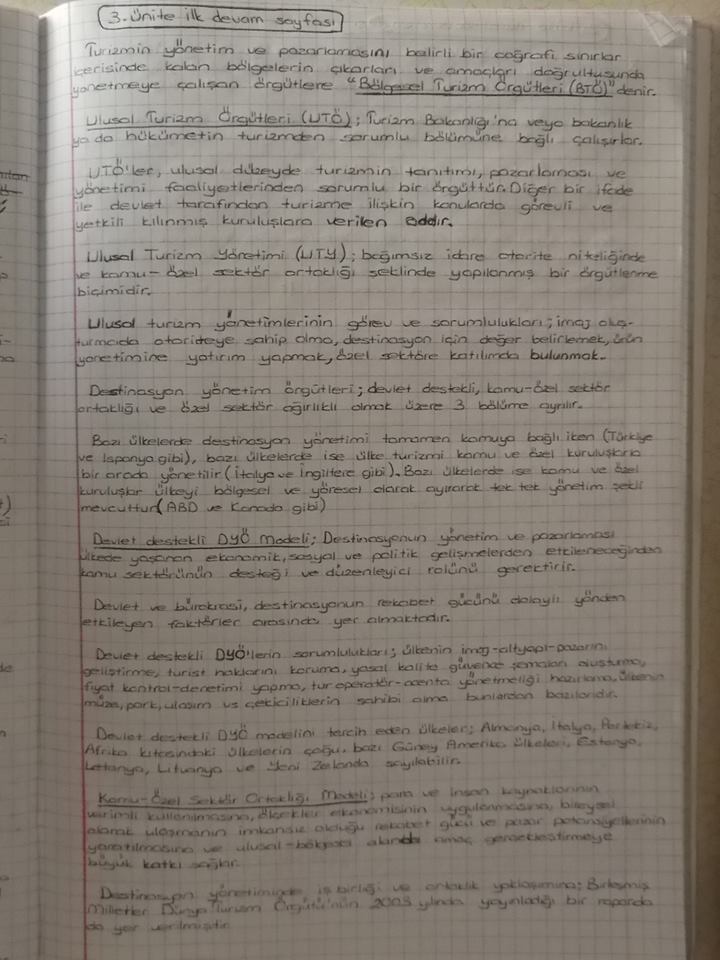 3. ünite ilk devam sayfası
Turizmin yönetim ve pazarlamasını belirli bir coğrafi sınırlar
içerisinde kalan bölgelerin çıkarları ve amaçları doğrultusunda
yönetmeye çalışan örgütlere "Bölgesel Turizm Örgütleri (BTÖ)" denir.
Ulusal Turizm Örgütleri (UTÖ); Turizm Bakanlığı'na veya bakanlık
ya da hükümetin turizmden sorumlu bölümüne bağlı çalışırlar.
UTÖ'ler, ulusal düzeyde turizmin tanıtımı, pazarlaması ve
yönetimi faaliyetlerinden sorumlu bir örgüttür. Diğer bir ifade
ile devlet tarafından turizme ilişkin konularda görevli ve
yetkili kılınmış kuruluşlara verilen addır.
Ulusal Turizm Yönetimi (UTY); bağımsız idare otorite niteliğinde
ve kamu-özel sektör ortaklığı şeklinde yapılanmış bir örgütlenme
biçimidir.
Ulusal turizm yönetimlerinin görev ve sorumlulukları; imaj oluş-
turmada otoriteye sahip olma, destinasyon için değer belirlemek, ürün
yönetimine yatırım yapmak, özel sektöre katılımda bulunmak.
Destinasyon yönetim örgütleri; devlet destekli, kamu-özel sektör
ortaklığı ve özel sektör ağırlıklı olmak üzere 3 bölüme ayrılır.
Bazı ülkelerde destinasyon yönetimi tamamen kamuya bağlı iken (Türkiye
ve İspanya gibi), bazı ülkelerde ise ülke turizmi kamu ve özel kuruluşlarla
bir arada yönetilir (İtalya ve İngiltere gibi). Bazı ülkelerde ise kamu ve özel
kuruluşlar ülkeyi bölgesel ve yöresel olarak ayırarak tek tek yönetim şekli
mevcuttur (ABD ve Kanada gibi)
Devlet destekli DYÖ Modeli; Destinasyonun yönetim ve pazarlaması
ülkede yaşanan ekonomik, sosyal ve politik gelişmelerden etkileneceğinden
kamu sektörünün desteği ve düzenleyici rolünü gerektirir.
Devlet ve bürokrasi, destinasyonun rekabet gücünü dolaylı yönden
etkileyen faktörler arasında yer almaktadır.
Devlet destekli DYÖ'lerin sorumlulukları; ülkenin imaj-altyapı-pazarını
geliştirme, turist haklarını koruma, yasal kalite güvence şemaları oluşturma,
fiyat kontrol-denetimi yapma, tur operatör-acenta yönetmeliği hazırlama, ülkenin
müze, park, ulaşım vs çekiciliklerin sahibi olma bunlardan bazılarıdır.
Devlet destekli DYÖ modelini tercih eden ülkeler; Almanya, İtalya, Portekiz,
Afrika kıtasındaki ülkelerin çoğu, bazı Güney Amerika ülkeleri, Estonya,
Letonya, Lituanya ve Yeni Zelanda sayılabilir.
Kamu-Özel Sektör Ortaklığı Modeli; para ve insan kaynaklarının
verimli kullanılmasına, ölçekler ekonomisinin uygulanmasına, bireysel
olarak ulaşmanın imkansız olduğu rekabet gücü ve pazar potansiyellerinin
yaratılmasına ve ulusal-bölgesel alanda amaç gerçekleştirmeye
büyük katkı sağlar.
Destinasyon yönetiminde iş birliği ve ortaklık yaklaşımına; Birleşmiş
Milletler Dünya Turizm Örgütü'nün 2003 yılında yayınladığı bir raporda
da yer verilmiştir.